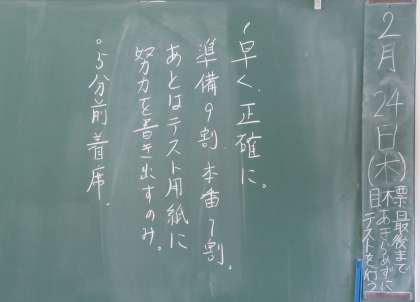 2月24日(木)
標目 最後まで
あきらめずに
テストを行う
・早く、正確に。
準備9割、本番1割。
あとはテスト用紙に
努力を書き出すのみ。
・5分前着席。